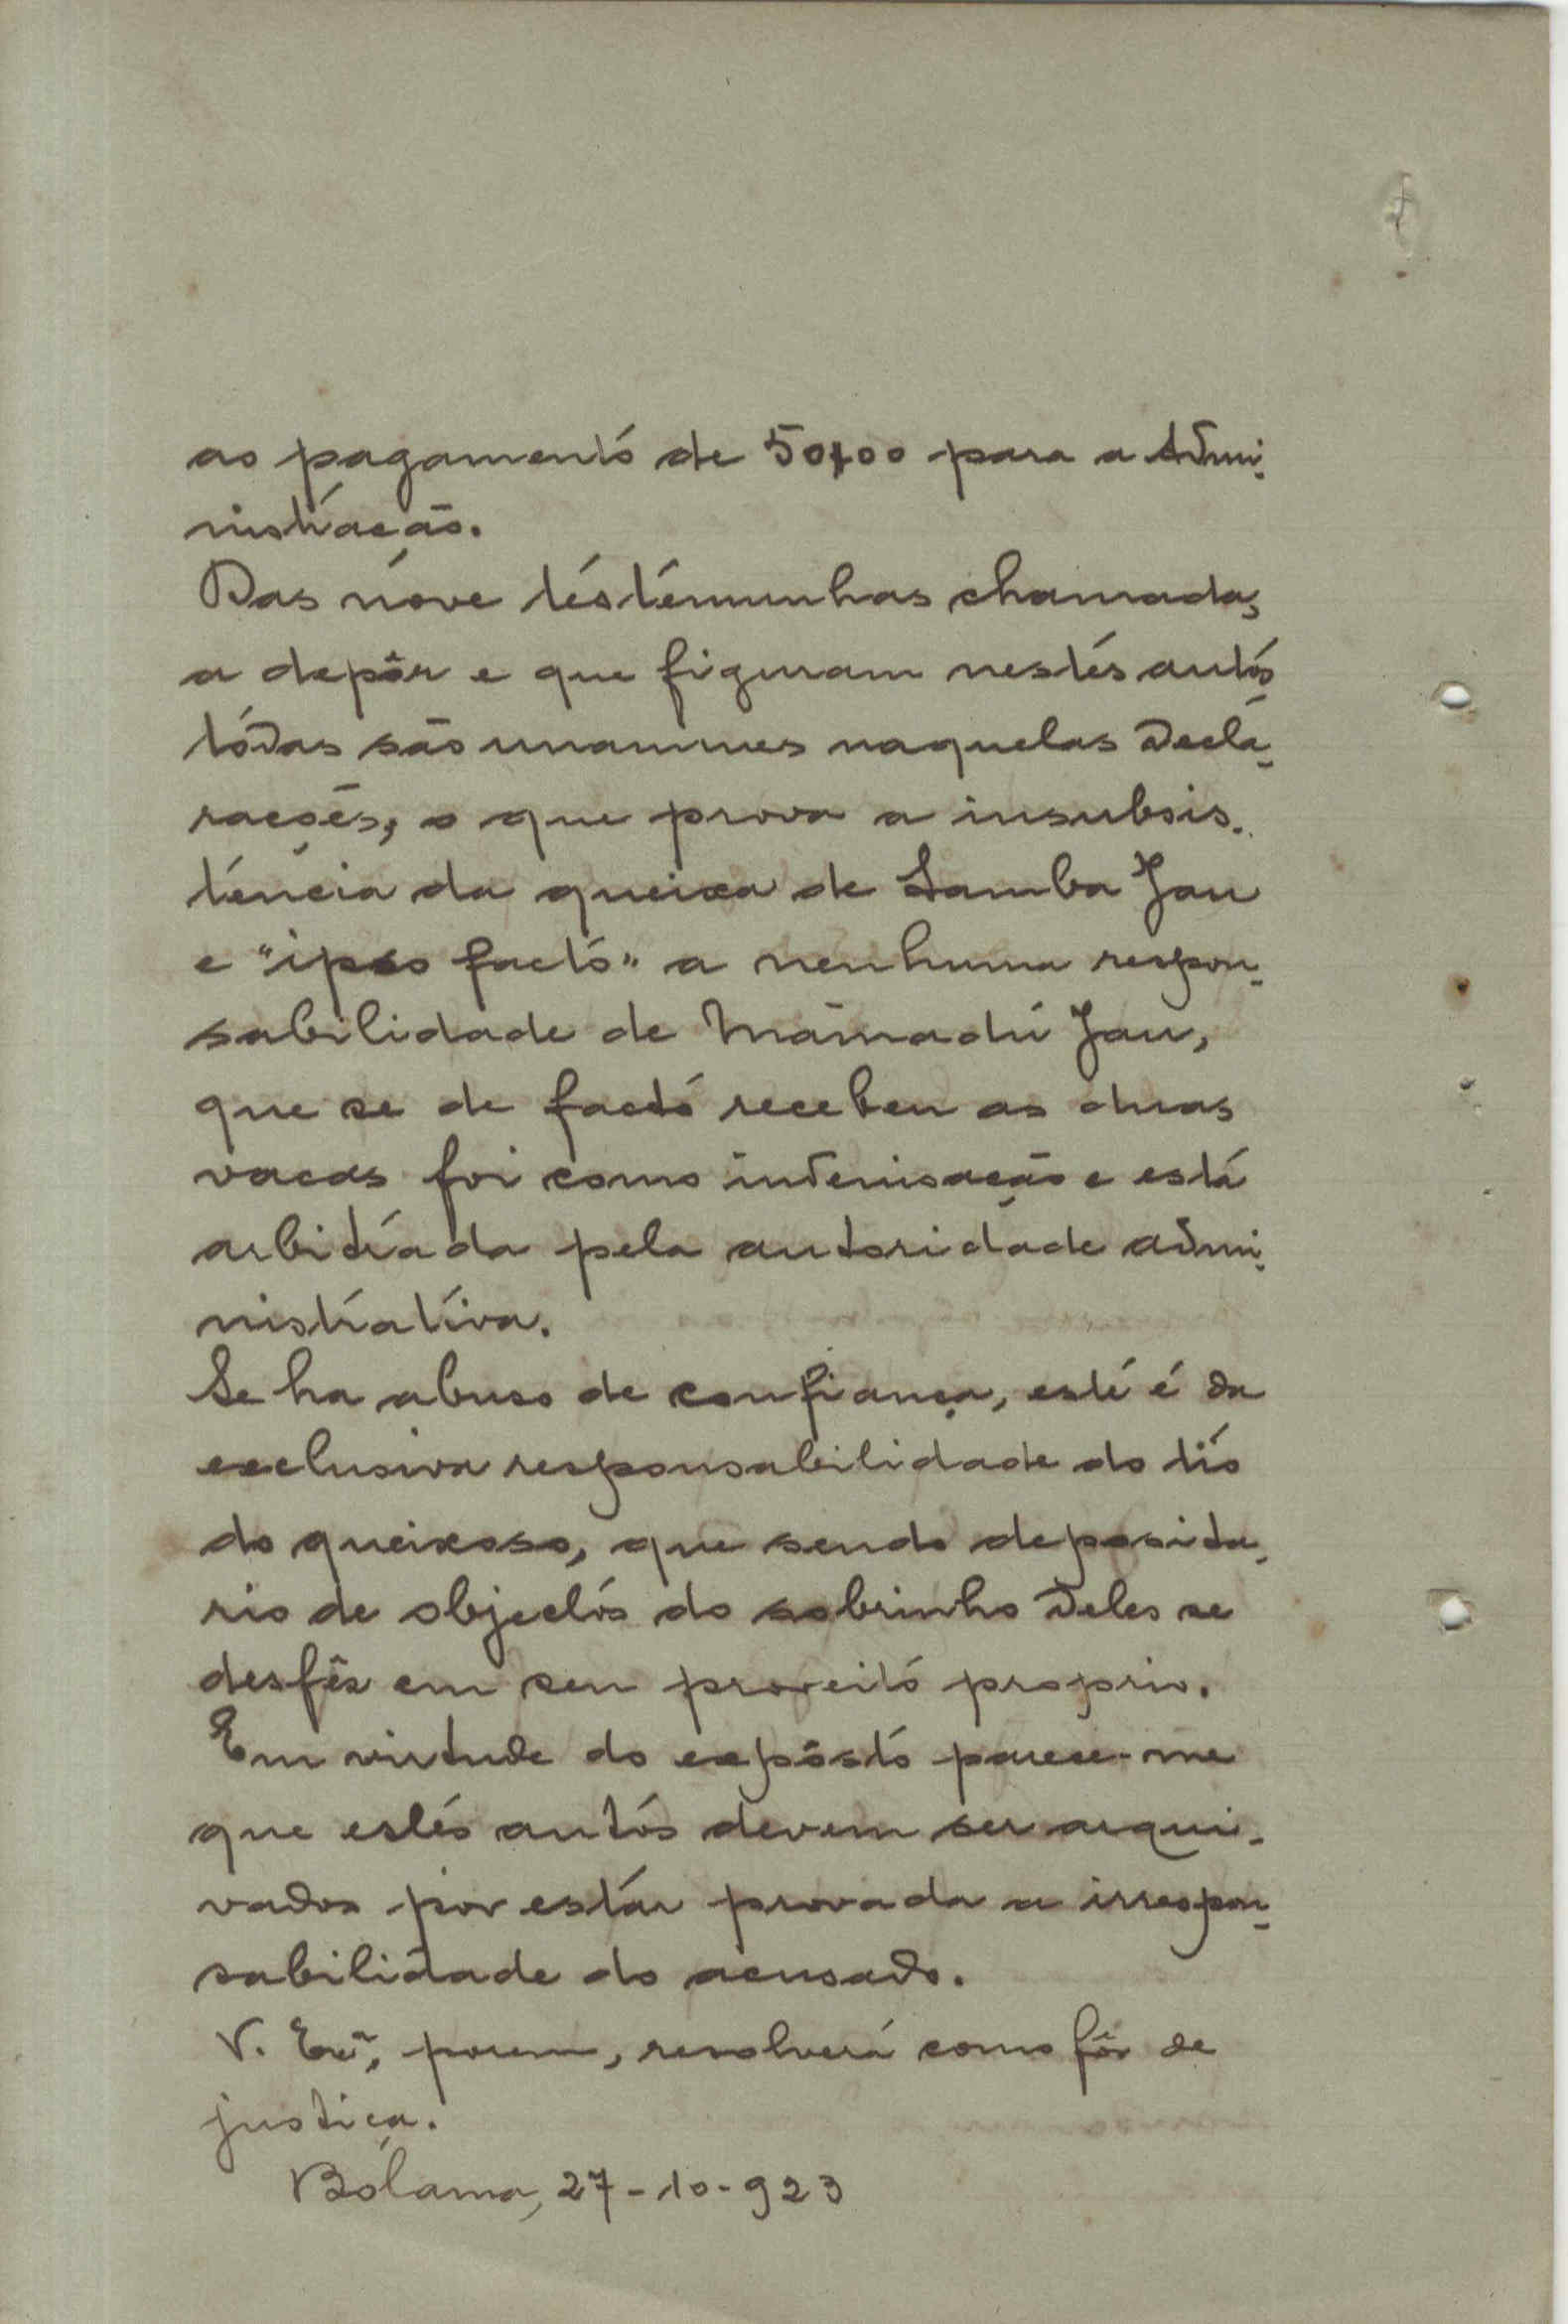 ao pagamento de 50$00 para a Admi-
nistração.
Das nove testemunhas chamadas
a depôr e que figuram nestes autos
todas são unanimes naquelas decla-
rações, o que prova a insubsis-
tencia da queixa de Samba Jau
e "ipso facto" a nenhuma respon-
sabilidade de Mamadú Jau,
que se de facto recebeu as duas
vacas foi como indemisação e está
arbitrada pela autoridade admi-
nistrativa.
Se ha abuso de confiança, este é da
exclusiva responsabilidade do tio
do queixoso, que sendo deposita-
rio de objectos do sobrinho deles se
desfês em seu proveito proprio.
Em virtude do expôsto parece-me
que estes autos devem ser arqui-
vados por estar provada a irrespon-
sabilidade do acusado.
V. Exª, porem, resolverá como fôr de
justiça.
Bolama, 27-10-923